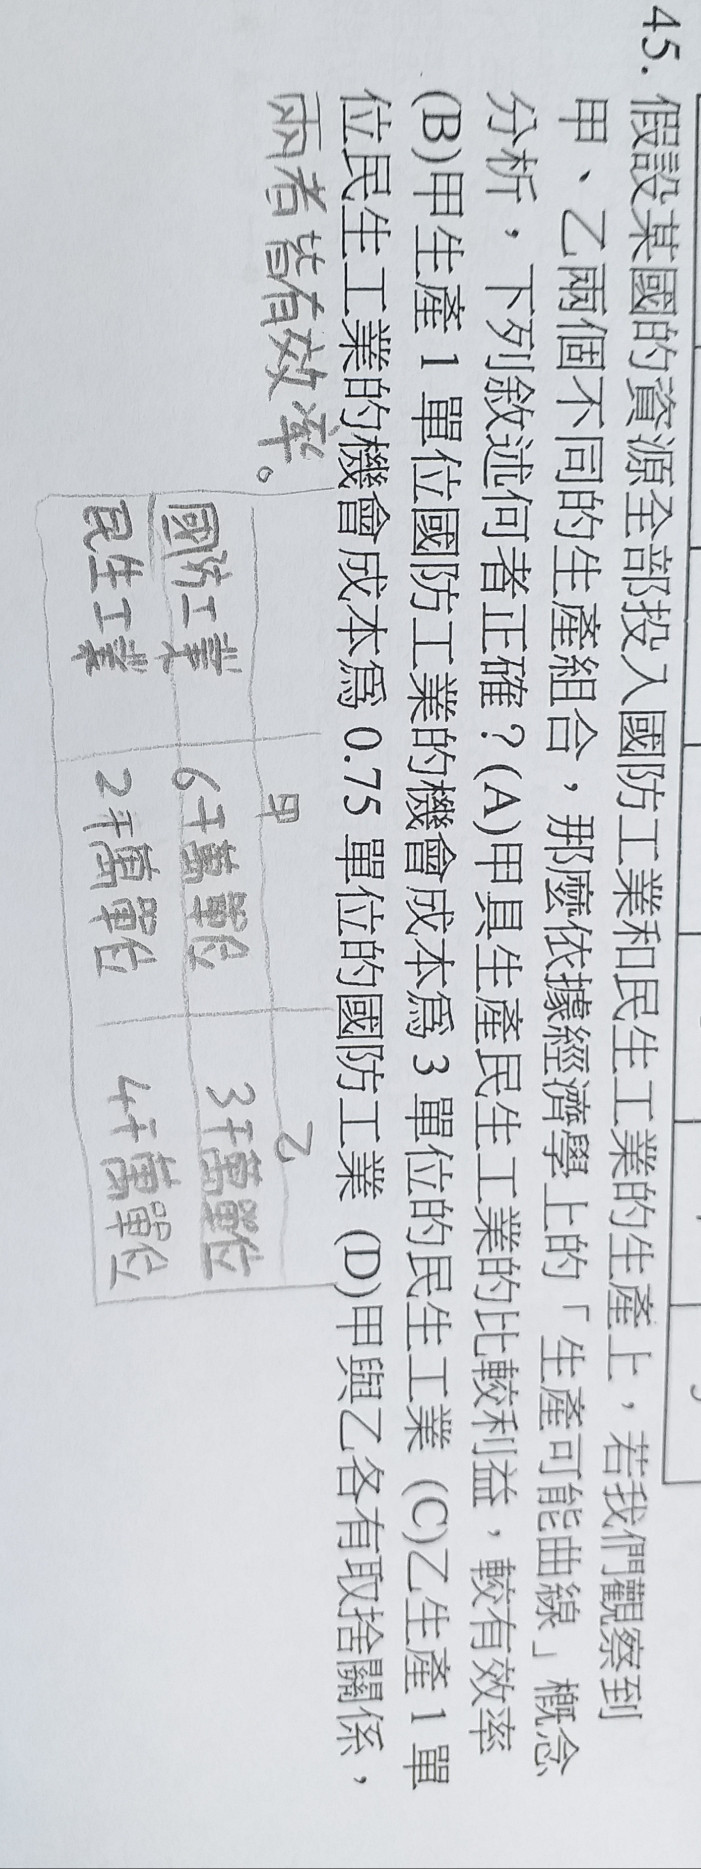 45. 假設某國的資源全部投入國防工業和民生工業的生產上，若我們觀察到
甲、乙兩個不同的生產組合，那麼依據經濟學上的「生產可能曲線」概念
分析，下列敘述何者正確？(A)甲具生產民生工業的比較利益，較有效率
(B)甲生產 1 單位國防工業的機會成本為 3 單位的民生工業 (C)乙生產 1 單
位民生工業的機會成本為 0.75 單位的國防工業 (D)甲與乙各有取捨關係，
兩者皆有效率。
甲 乙
國防工業 6千萬單位 3千萬單位
民生工業 2千萬單位 4千萬單位